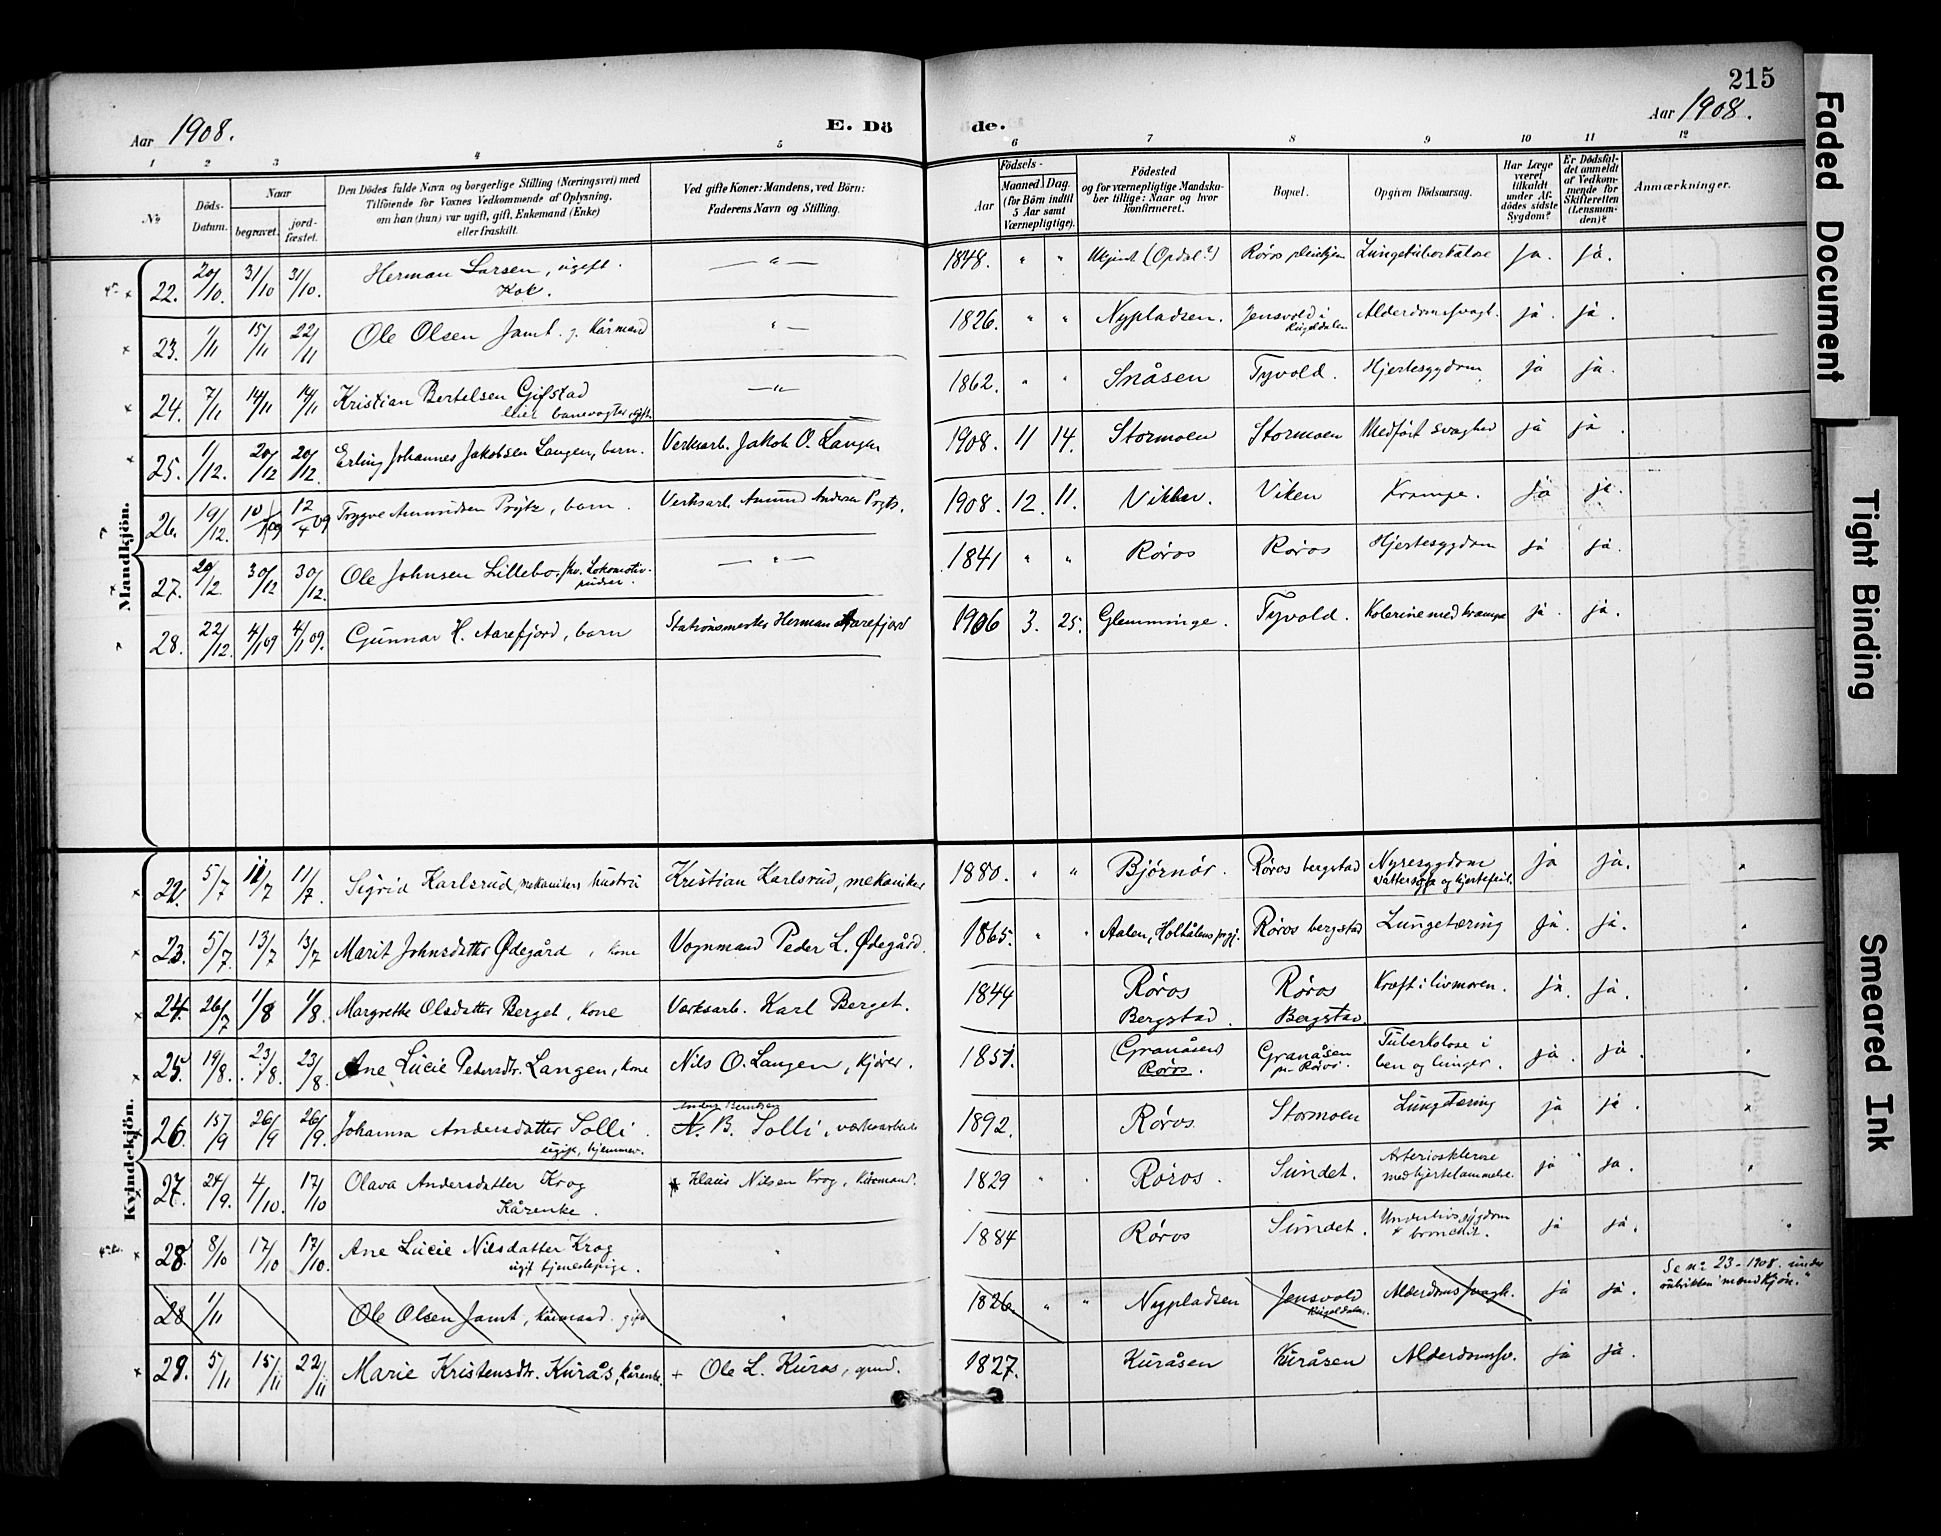 215
Aar 1908.
E. Dö
de.
Aar 1908.
1 2 3 4 5 6 7 8 9 10 11 12
No
Döds-Datum.
Naar
begravet.
jordfæstet.
Den Dödes fulde Navn og borgerlige Stilling (Næringsvei) med
Tilföiende for Voxnes Vedkommende af Oplysning,
om han (hun) var ugift, gift, Enkemand (Enke)
eller fraskilt.
Ved gifte Koner: Mandens, ved Börn:
Faderens Navn og Stilling.
Födsels-
Aar
Maaned. Dag.
(for Börn indtil
5 Aar samt
Værnepligtige).
Födested
og for værnepligtige Mandskaber tillige: Naar og hvor
konfirmeret.
Bopæl.
Opgiven Dödsaarsag.
Har Læge
været
tilkaldt
under Afdödes sidste
Sygdom?
Er Dödsfaldet anmeldt
af Vedkommende for
Skifteretten
(Lensmanden)?
Anmærkninger.
Mandkjön.
22. 20/10. 31/10 31/10. Herman Larsen, ugift. — " — 1848. " " Ukjent (Opdal?) Røros pleiehjem Lungetuberkulose Ja. ja.
Kok.
23. 1/11 15/11 22/11 Ole Olsen Jamt. g. Kårmand " — 1826. " " Nypladsen. Jensvold i Alderdomssvagh. ja. ja.
Rugldalen
24. 7/11 14/11 14/11 Kristian Bertelsen Gifstad — " — 1862. " " Snåsen Tyvold. Hjertesygdom ja ja.
banevogter, gift.
25. 1/12. 20/12 20/12. Erling Johannes Jakobsen Langen, barn. Verksarb. Jakob O. Langen 1908. 11 14. Stormoen Stormoen Medført svaghed ja ja.
26. 19/12. 10/4 09 12/4 09 Trygve Amundsen Prytz, barn. Verksarb. Amund Andersen Prytz. 1908. 12. 11. Viken. Viken Krampe. ja ja.
27. 20/12. 30/12 30/12. Ole Johnsen Lillebo, fhv. Lokomotiv- — " — 1841 " " Røros Røros Hjertesygdom ja ja.
pudser.
28. 22/12. 4/1 09 4/1 09. Gunnar H. Aarefjord, barn Stationsmester Herman Aarefjord 1906 3. 25. Glemminge. Tyvold. Kolerine med krampe ja. ja.
Kvindekjön.
22. 5/7 11/7 11/7. Sigrid Karlsrud, mekanikers hustru Kristian Karlsrud, mekaniker 1880. " " Bjørnør. Røros bergstad Nyresygdom ja ja. "
vattersot og hjertefeil.
23. 5/7. 13/7 13/7 Marit Johnsdatter Ødegård, kone Vognmand Peder L. Ødegård. 1865. " " Aalen, Holtålens prgj. Røros bergstad Lungetæring ja. ja. "
24. 26/7 1/8 1/8. Margrethe Olsdatter Berget, kone Værksarb. Karl Berget. 1844 Røros Røros Kræft i livmoren. ja. ja. "
Bergstad. Bergstad.
25. 19/8. 23/8. 23/8. Ane Lucie Pedersdtr. Langen, kone Nils O. Langen, kjører. 1851. Granåsen Granåsen Tuberkolose i ja. ja. "
Røros. pr. Røros. ben og lunger.
Anders Berntsen
26. 15/9 26/9 26/9. Johanna Andersdatter Solli. A. B. Solli, værksarbeider 1892. Røros. Stormoen Lungetæring ja ja. "
ugift, hjemmev.
27. 24/9. 4/10. 17/10 Olava Andersdatter Krog Klaus Nilsen Krog, Kårmand. 1829 " " Røros. Sundet. Arteriosklerose ja ja. "
Kårenke. med hjertelammelse.
28. 8/10 17/10 17/10. Ane Lucie Nilsdatter Krog " 1884 Røros Sundet. Underlivssygdom ja ja. "
ugift tjenestepige. & bronchit.
28 1/11 Ole Olsen Jamt, kårmand. gift " 1826. " " Nypladsen Jensvold Alderdomssvagh. ja ja. Se no 23 - 1908. under
Rugeldalen. rubrikken "mandkjøn."
29. 5/11 15/11 22/11 Marie Kristensdtr. Kurås, kårenke. + Ole L. Kurås, grmd. 1827. Kuråsen Kuråsen Alderdomssv. ja ja.
Faded Document
Tight Binding
Smeared Ink